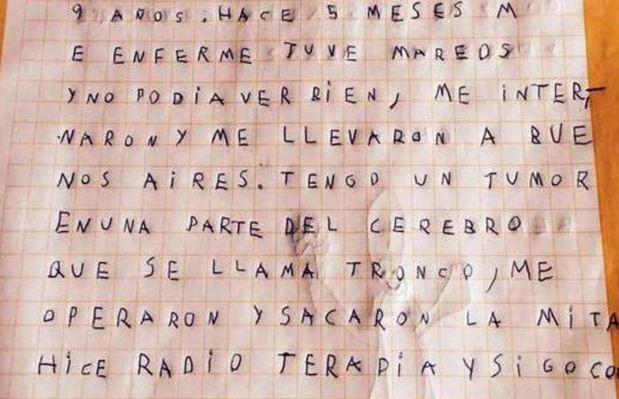 9 AÑOS. HACE 5 MESES M
E ENFERME TUVE MAREOS
Y NO PODIA VER BIEN, ME INTER-
NARON Y ME LLEVARON A BUE
NOS AIRES. TENGO UN TUMOR
EN UNA PARTE DEL CEREBRO
QUE SE LLAMA TRONCO, ME
OPERARON Y SACARON LA MITA
HICE RADIO TERAPIA Y SIGO CO